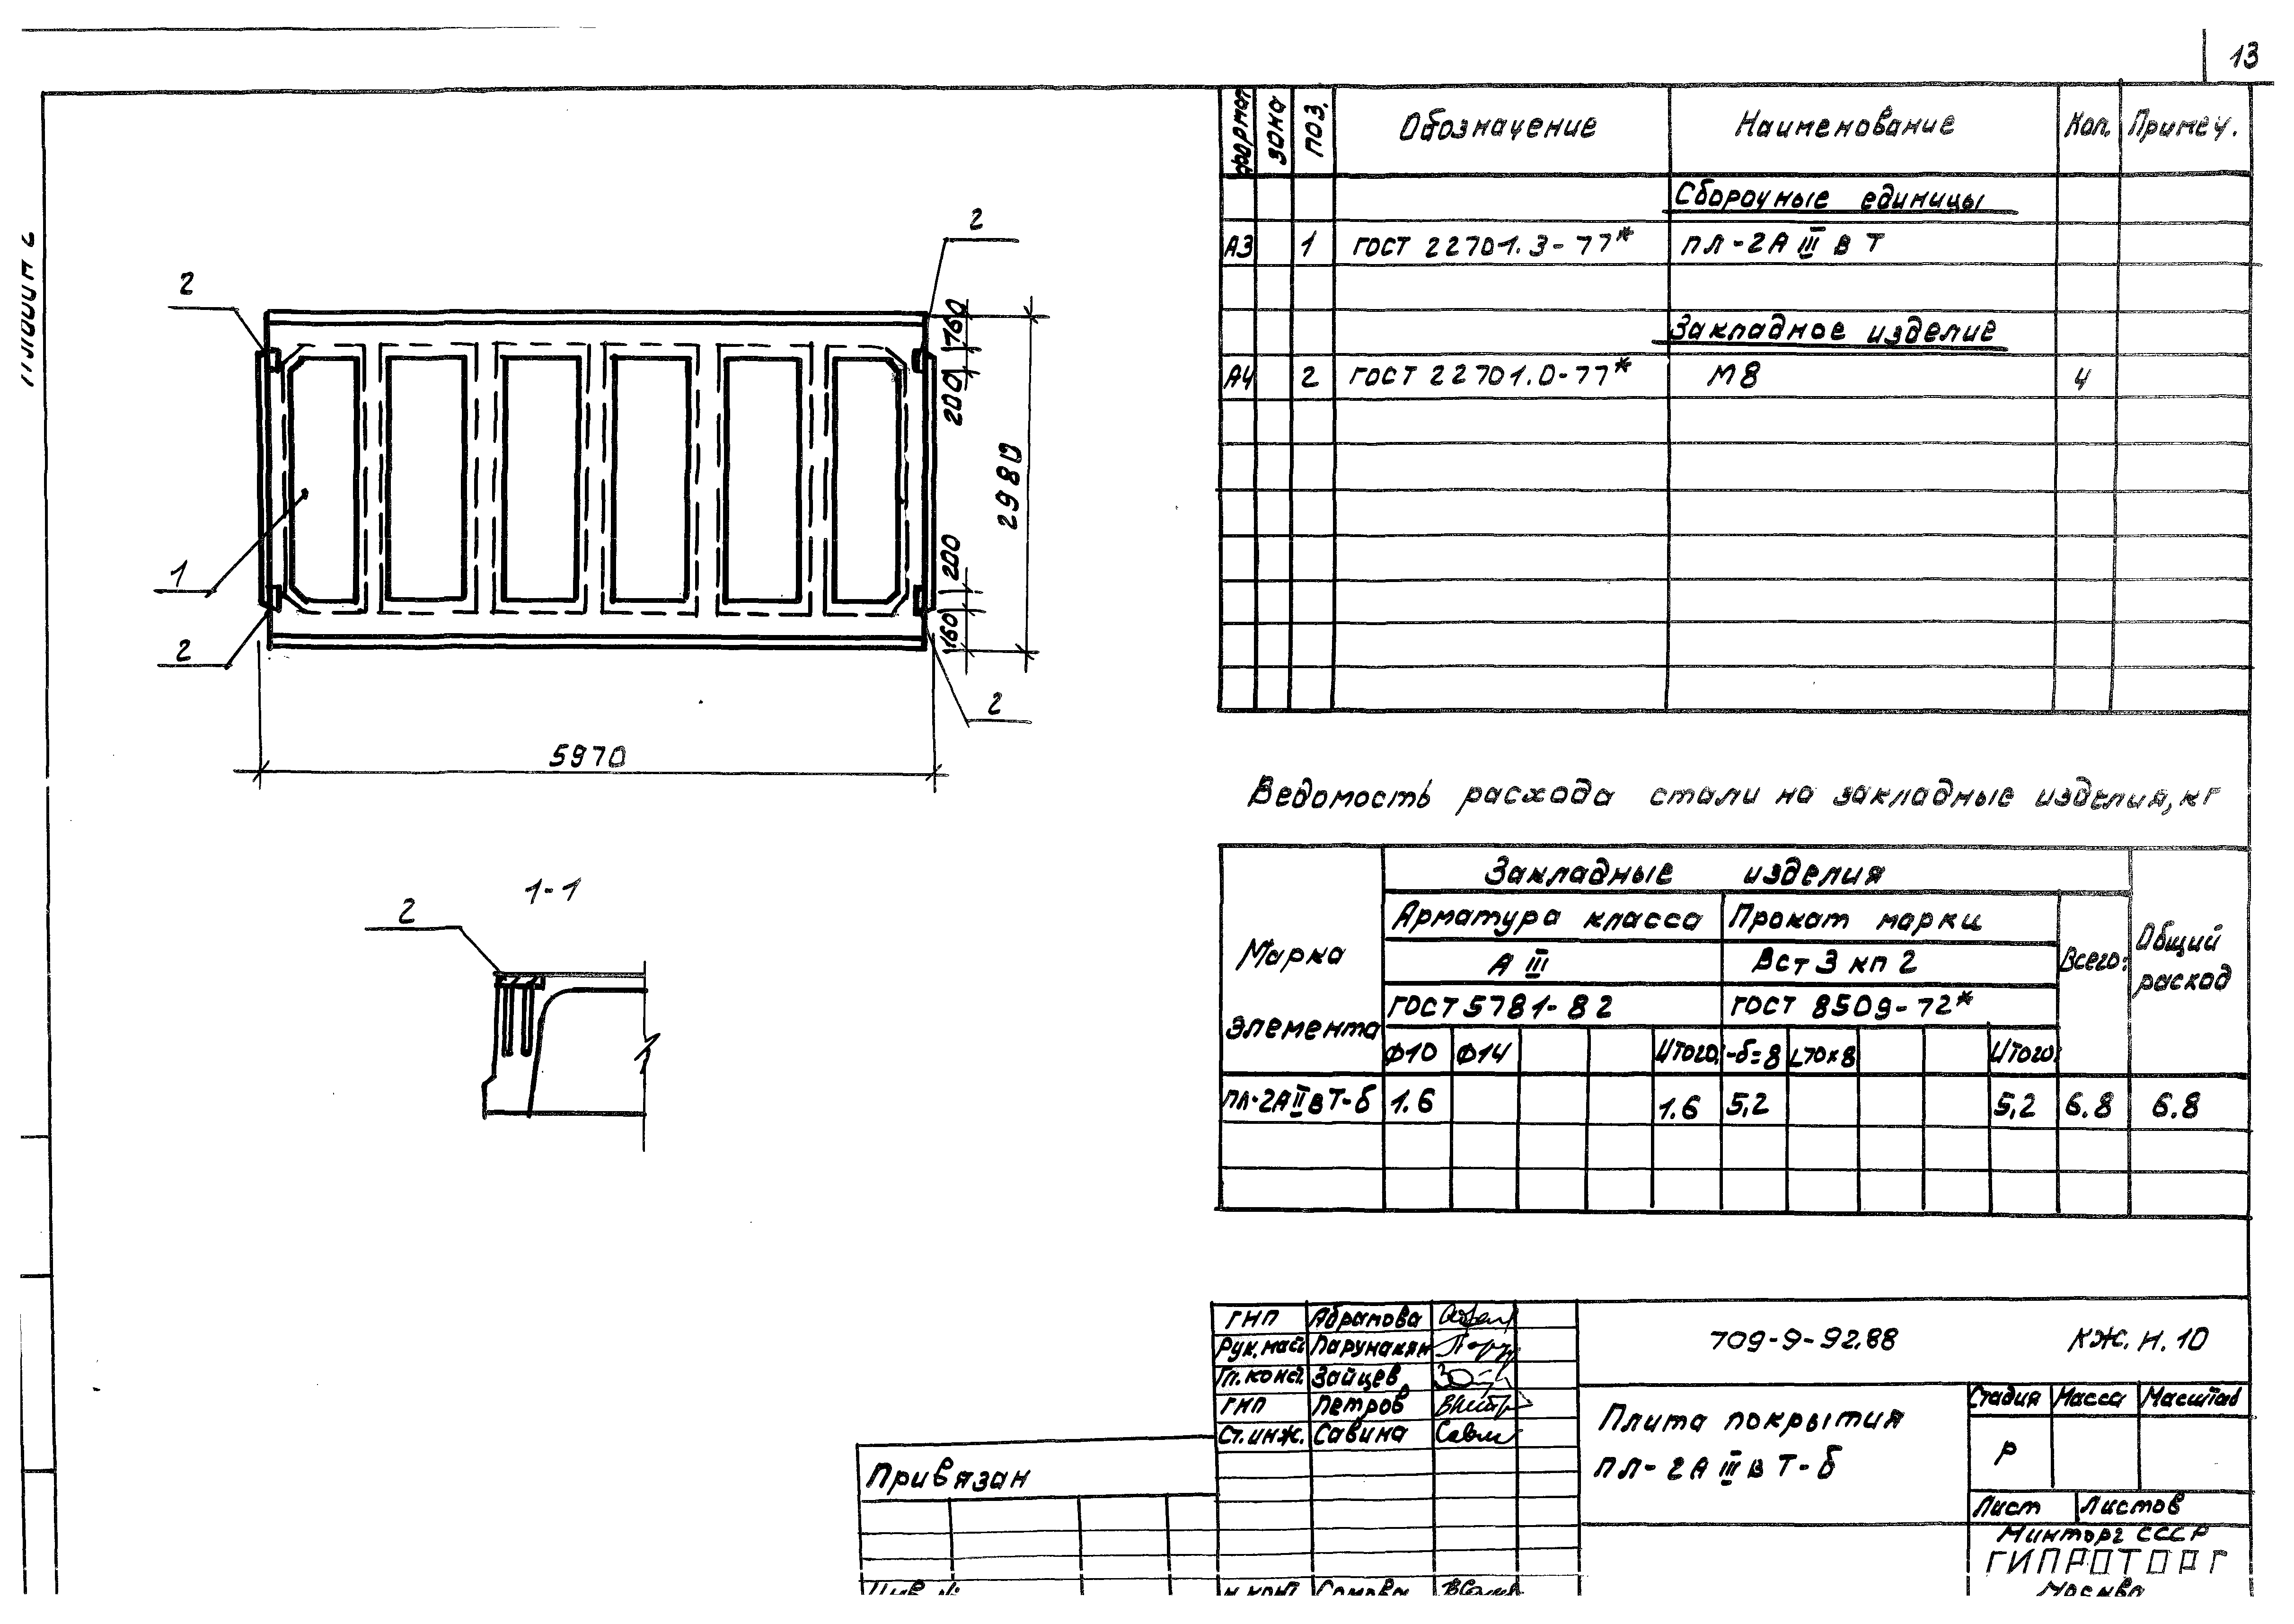 13
Альбом 2
2
2
160
200
2980
200
160
1
2
2
5970
1-1
2
Формат Зона Поз. Обозначение Наименование Кол. Примеч.
Сборочные единицы
А3 1 ГОСТ 22701.3-77* ПЛ-2АIIIвТ
Закладное изделие
А4 2 ГОСТ 22701.0-77* М8 4
Ведомость расхода стали на закладные изделия, кг
Марка элемента
Закладные изделия
Арматура класса Прокат марки
А III Вст 3 кп 2
Всего: Общий расход
ГОСТ 5781-82 ГОСТ 8509-72*
Ф10 Ф14 Итого: -δ=8 L70x8 Итого:
ПЛ-2АIIвТ-б 1.6 1.6 5,2 5,2 6.8 6.8
ГНП Абрамова
Рук.маст Парунакян
Гл.конст. Зайцев
ГНП Петров
Ст.инж. Савина
709-9-92.88 КЖ.Н.10
Плита покрытия
ПЛ-2АIIIвТ-б
Стадия Масса Масштаб
Р
Лист Листов
Минторг СССР
ГИПРОТОРГ
Москва
Привязан
Инв №
Н.конт